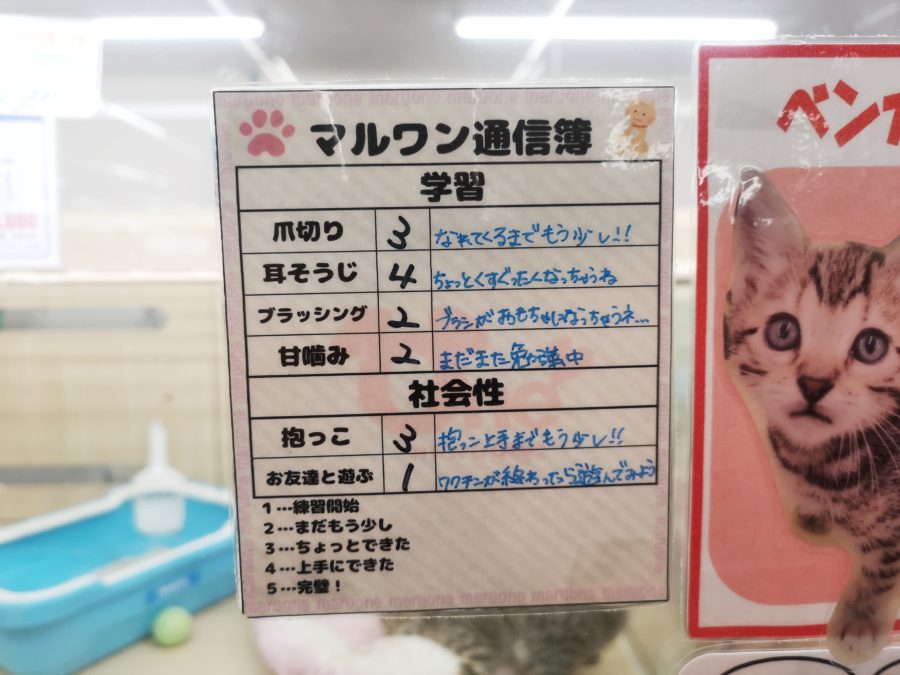 marione marione marione marione
マルワン通信簿
学習
爪切り 3 なれてくるまでもう少し!!
耳そうじ 4 ちょっとくすぐったくなっちゃうね
ブラッシング 2 ブラシがおもちゃになっちゃうネ...
甘噛み 2 まだまだ勉強中
社会性
抱っこ 3 抱っこ上手までもう少し!!
お友達と遊ぶ 1 ワクチンが終わったら遊んでみよう
1…練習開始
2…まだもう少し
3…ちょっとできた
4…上手にできた
5…完璧！
ベンガ